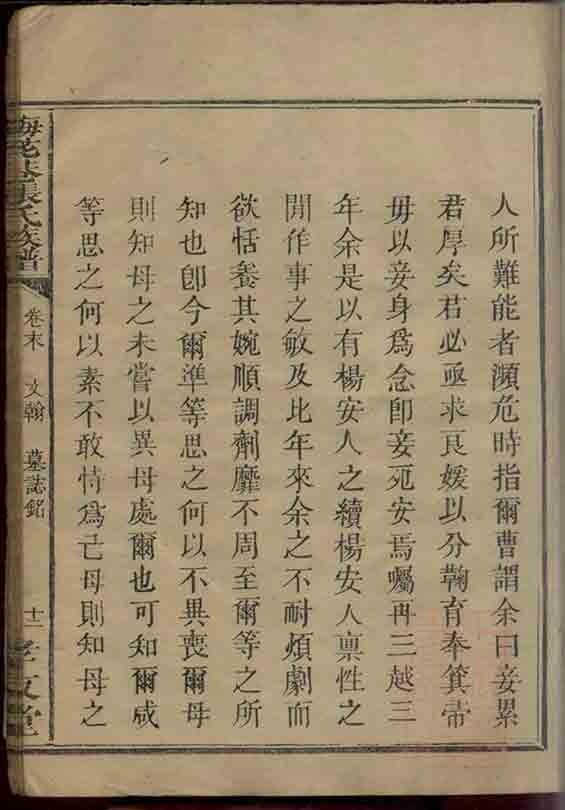 人所難能者瀕危時指爾曹謂余曰妾累
君厚矣君必亟求良媛以分鞠育奉箕帚
毋以妾身爲念卽妾死安焉囑再三越三
年余是以有楊安人之續楊安人稟性之
閒作事之敏及比年來余之不耐煩劇而
欲恬養其婉順調劑靡不周至爾等之所
知也卽今爾準等思之何以不異喪爾母
則知母之未嘗以異母處爾也可知爾咸
等思之何以素不敢恃爲亡母則知母之
梅花巷張氏族譜
卷末 文翰 墓誌銘
十二 孝友堂